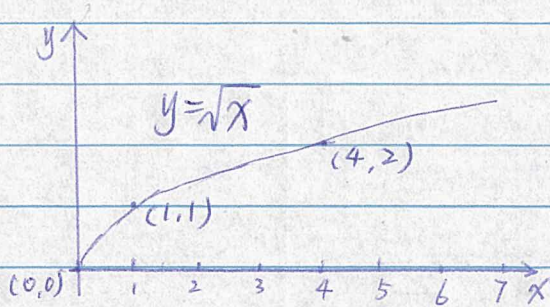 y
y=√x
(4,2)
(1,1)
(0,0) 1 2 3 4 5 6 7 x